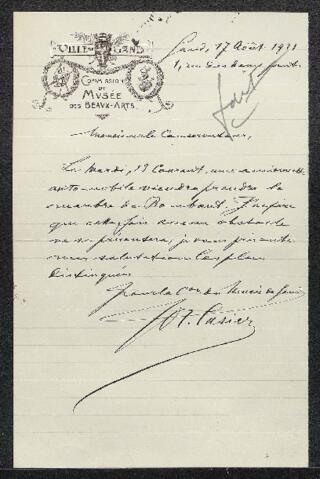 VILLE DE GAND
COMMISSION
DU
MUSÉE
DES BEAUX-ARTS
Gand, 17 Août 1921
1, rue des deux ponts
fait
Monsieur le Conservateur,
Le Mardi, 23 Courant, une camionette
automobile viendra prendre le
Rombaut. J'espère
que cette fois aucun obstacle
ne se présentera, je vous présente
mes salutations les plus
distinguées
Pour la Con du Musée de Gand
J. Casier